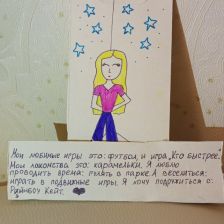 Мои любимые игры это: футбол, и игра „Кто быстрее."
Мои лакомства это: карамельки. Я люблю
проводить время: гулять в парке А веселиться:
играть в подвижные игры. Я хочу подружиться с:
Рэйнбоу Кейт.